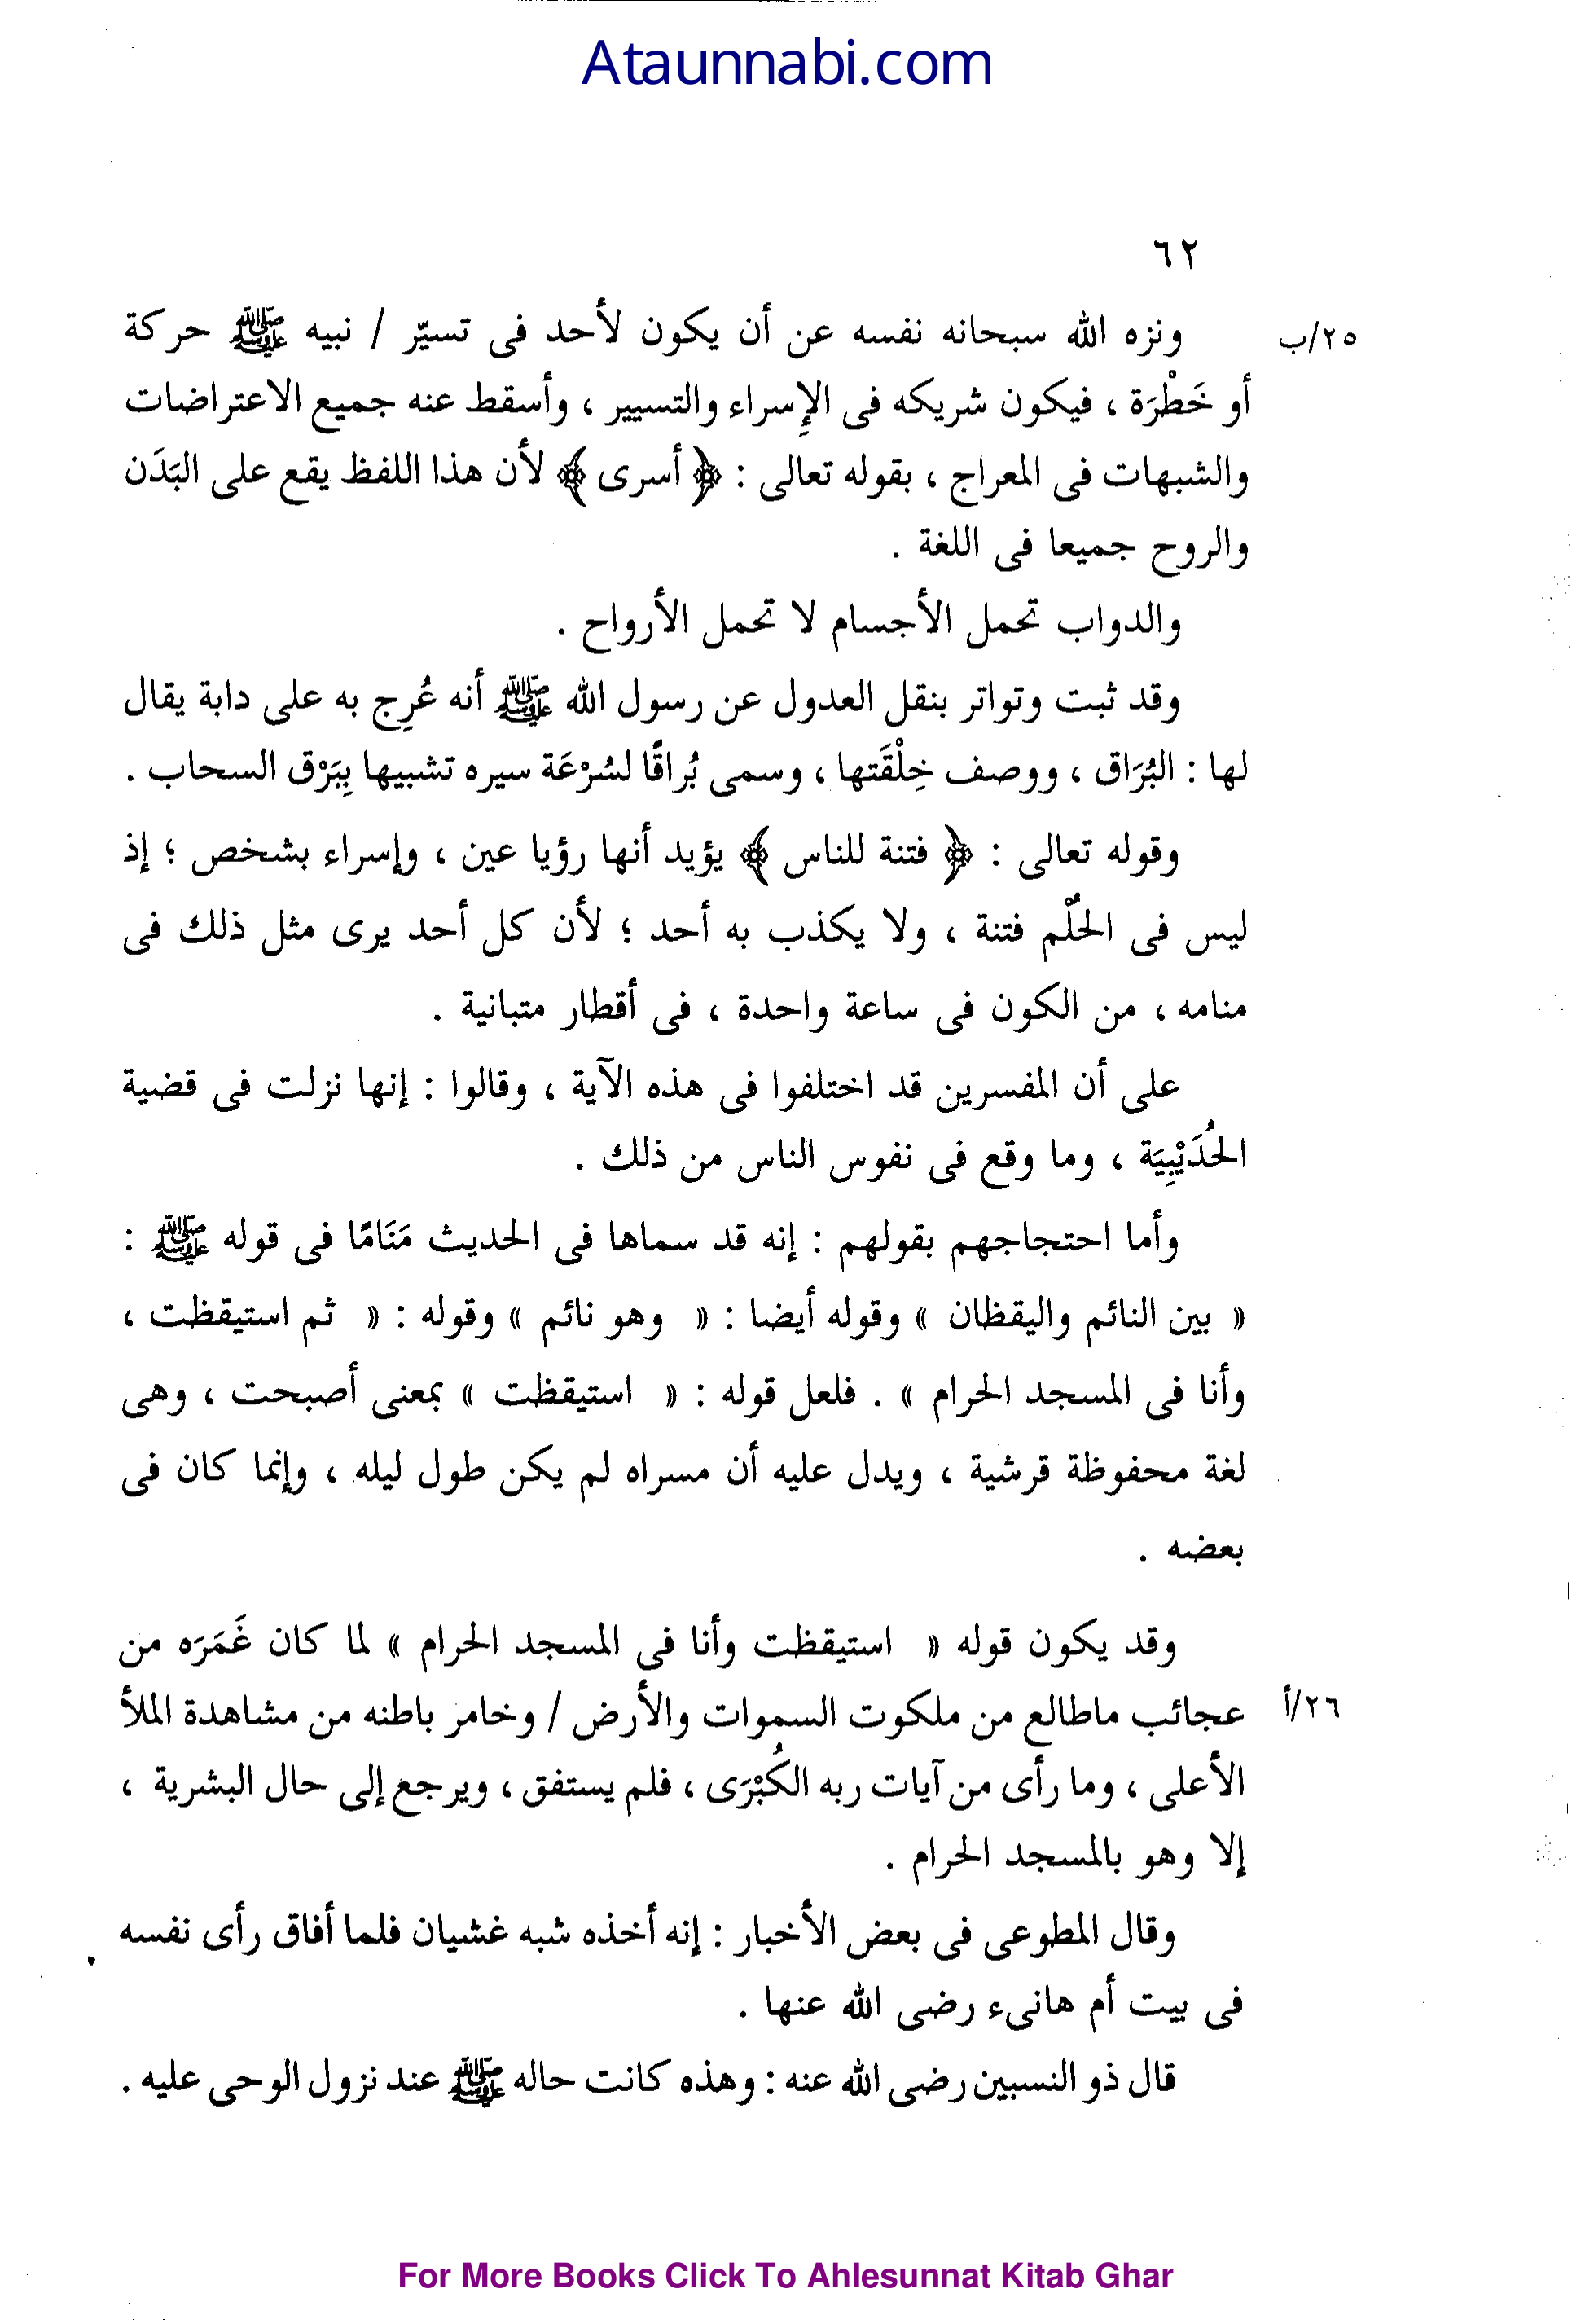 Ataunnabi.com
٦٢
ونزه الله سبحانه نفسه عن أن يكون لأحد فى تسيّر / نبيه ﷺ حركة
٢٥/ب
أو خَطْرَة ، فيكون شريكه فى الإِسراء والتسيير ، وأسقط عنه جميع الاعتراضات
والشبهات فى المعراج ، بقوله تعالى : ﴿ أسرى ﴾ لأن هذا اللفظ يقع على البَدَن
والروح جميعا فى اللغة .
والدواب تحمل الأجسام لا تحمل الأرواح .
وقد ثبت وتواتر بنقل العدول عن رسول الله ﷺ أنه عُرِج به على دابة يقال
لها : البُرَاق ، ووصف خِلْقَتها ، وسمى بُراقًا لسُرْعَة سيره تشبيها بِبَرْق السحاب .
وقوله تعالى : ﴿ فتنة للناس ﴾ يؤيد أنها رؤيا عين ، وإسراء بشخص ؛ إذ
ليس فى الحُلْم فتنة ، ولا يكذب به أحد ؛ لأن كل أحد يرى مثل ذلك فى
منامه ، من الكون فى ساعة واحدة ، فى أقطار متبانية .
على أن المفسرين قد اختلفوا فى هذه الآية ، وقالوا : إنها نزلت فى قضية
الحُدَيْبِيَة ، وما وقع فى نفوس الناس من ذلك .
وأما احتجاجهم بقولهم : إنه قد سماها فى الحديث مَنَامًا فى قوله ﷺ :
« بين النائم واليقظان » وقوله أيضا : « وهو نائم » وقوله : « ثم استيقظت ،
وأنا فى المسجد الحرام » . فلعل قوله : « استيقظت » بمعنى أصبحت ، وهى
لغة محفوظة قرشية ، ويدل عليه أن مسراه لم يكن طول ليله ، وإنما كان فى
بعضه .
وقد يكون قوله « استيقظت وأنا فى المسجد الحرام » لما كان غَمَرَه من
عجائب ماطالع من ملكوت السموات والأرض / وخامر باطنه من مشاهدة الملأ
٢٦/أ
الأعلى ، وما رأى من آيات ربه الكُبْرَى ، فلم يستفق ، ويرجع إلى حال البشرية ،
إلا وهو بالمسجد الحرام .
وقال المطوعى فى بعض الأخبار : إنه أخذه شبه غشيان فلما أفاق رأى نفسه
فى بيت أم هانىء رضى الله عنها .
قال ذو النسبين رضى الله عنه : وهذه كانت حاله ﷺ عند نزول الوحى عليه .
For More Books Click To Ahlesunnat Kitab Ghar